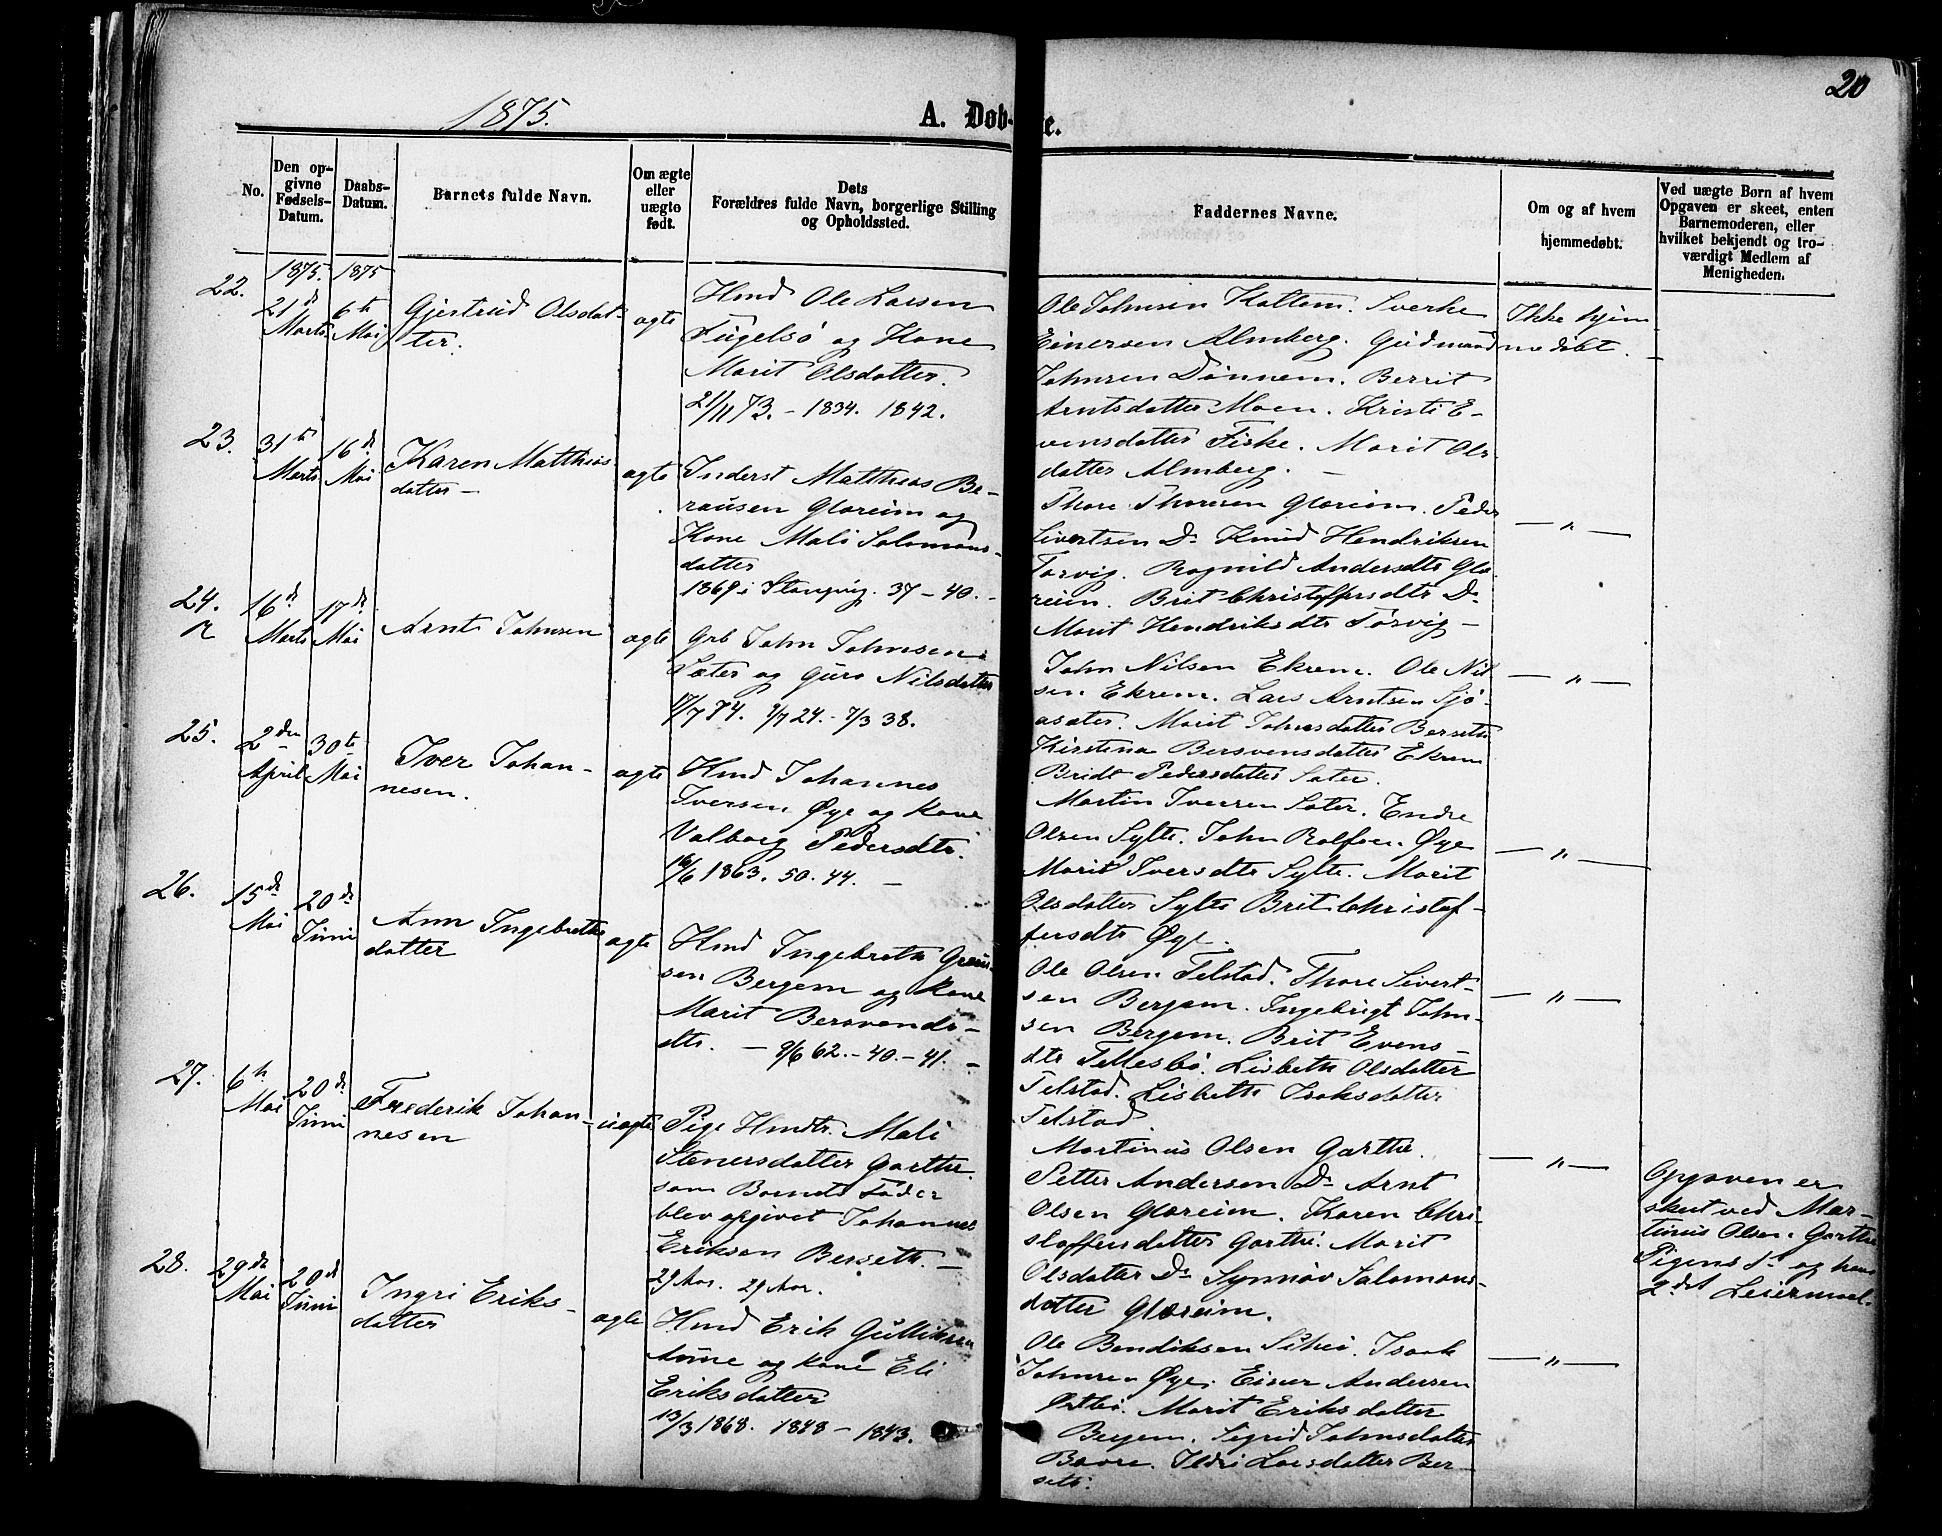 20
1875.
A. Døb- te.
No.
Den op-
givne
Fødsels-
Datum.
Daabs-
Datum.
Barnets fulde Navn.
Om ægte
eller
uægte
født.
Dets
Forældres fulde Navn, borgerlige Stilling
og Opholdssted.
Faddernes Navne.
Om og af hvem
hjemmedøbt.
Ved uægte Børn af hvem
Opgaven er skeet, enten
Barnemoderen, eller
hvilket bekjendt og tro-
værdigt Medlem af
Menigheden.
22.
1875.
21de
Marts
1875
6te
Mai
Gjertrud Olsdat-
ter.
ægte
Hmd Ole Larsen
Fugelsø og Kone
Marit Olsdatter.
21/11 73. - 1834. 1842.
Ole Johnsen Kattem. Sverke
Einersen Almberg. Gudmund
Johnsen Dønnem. Berrit
Arntsdatter Moen. Kristi E-
vensdatter Fiske. Marit Ols
datter Almberg. -
Ikke hjem-
medøbt.
23.
31te
Marts
16de
Mai
Karen Matthias
datter -
ægte
Inderst Matthias Be-
Glæreim og
Kone Mali Salomons-
datter
1869 i Stangvig. 37 - 40. -
Thore Thoresen Glæreim. Peder
Sivertsen Do Knud Hendriksen
Torvig. Ragnild Andersdtr Glæ-
reim. Brit Christoffersdtr Do
Marit Hendriksdtr Torvig -
- " -
24.
16de
Marts
17de
Mai
Arnt Johnsen
ægte
Grb John Johnsen
Sæter og Guro Nilsdatter
/7 74. 2/7 24. - 7/3 38.
John Nilsen Ekrem. Ole Nil
sen Ekrem. Lars Arntsen Sjø-
asæter. Marit Johnsdatter Berseth
Kirstina Bersvensdatter Ekrem
Bridt Pedersdatter Sæter.
- " -
25.
2den
April
30te
Mai
Iver Johan-
nesen.
ægte
Hmd Johannes
Iversen Øye og Kone
Valborg Pedersdtr.
16/6 1863. 50. 44. -
Martin Iversen Sæter. Endre
Olsen Sylte. John Rolfsen Øye
Marit Iversdtr Sylte. Marit
Olsdatter Sylte Brit Christof-
fersdtr Øye.
- " -
26.
15de
Mai
20de
Juni
Ann Ingebrethe
datter
ægte
Hmd Ingebreth
sen Bergem og Kone
Marit Bersvends-
dtr. - 9/6 62. - 40. - 41. -
Ole Olsen Telstad. Thore Sivert-
sen Bergem. Ingebrigt John-
sen Bergem. Brit Evens-
dtr Tellesbø. Lisbeth Olsdatter
Telstad. Lisbeth Isaksdatter
Telstad.
- " -
27.
6te
Mai
20de
Juni
Frederik Johan-
nesen
uægte
Pige Hmdtr. Mali
Stenersdatter Garthe.
som Barnets Fader
blev opgivet Johannes
Eriksen Berseth. -
29 Aar. 29 Aar.
Martinus Olsen Garthe.
Petter Andersen Do Arnt
Olsen Glæreim. Karen Chri-
stoffersdatter Garthe. Marit
Olsdatter Do Synnøv Salomons-
datter Glæreim.
- " -
Opgaven er
skeet ved Mar-
tinus Olsen Garthe
Pigens 1ste og hans
2det Leiermaal.
28.
29de
Mai
20de
Juni
Ingri Eriks-
datter
ægte
Hmd Erik Gulliksen
Aune og Kone Eli
Eriksdatter
13/3 1868. 1848 - 1843.
Ole Bendiksen Isaak
Johnsen Øye. Einer Andersen
Marit Eriksdatter
Bergem. Sigrid Johnsdatter
Bævre. Ildri Larsdatter Ber-
seth.
- " -